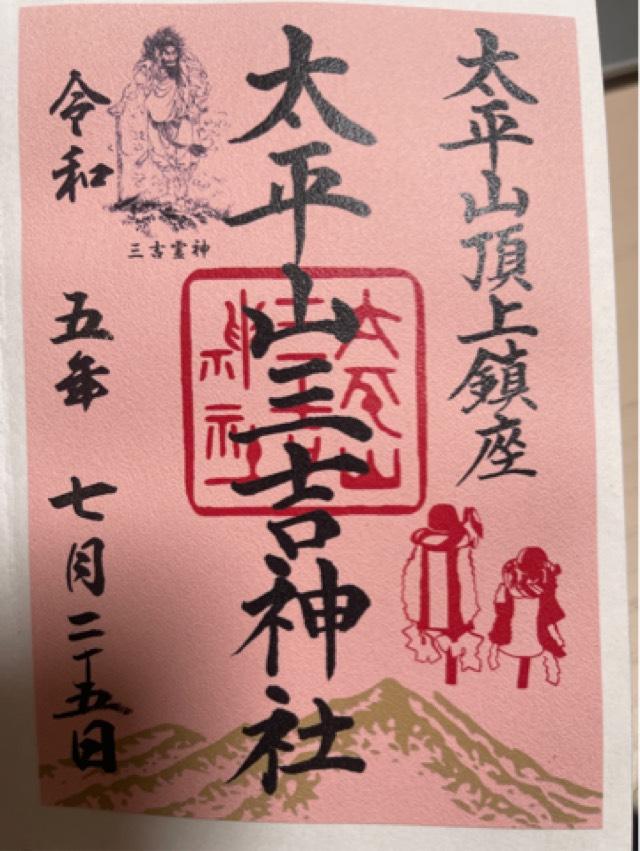 太平山頂上鎮座
太平山三吉神社
太平山
三吉
神社
三吉霊神
令和五年七月二十五日